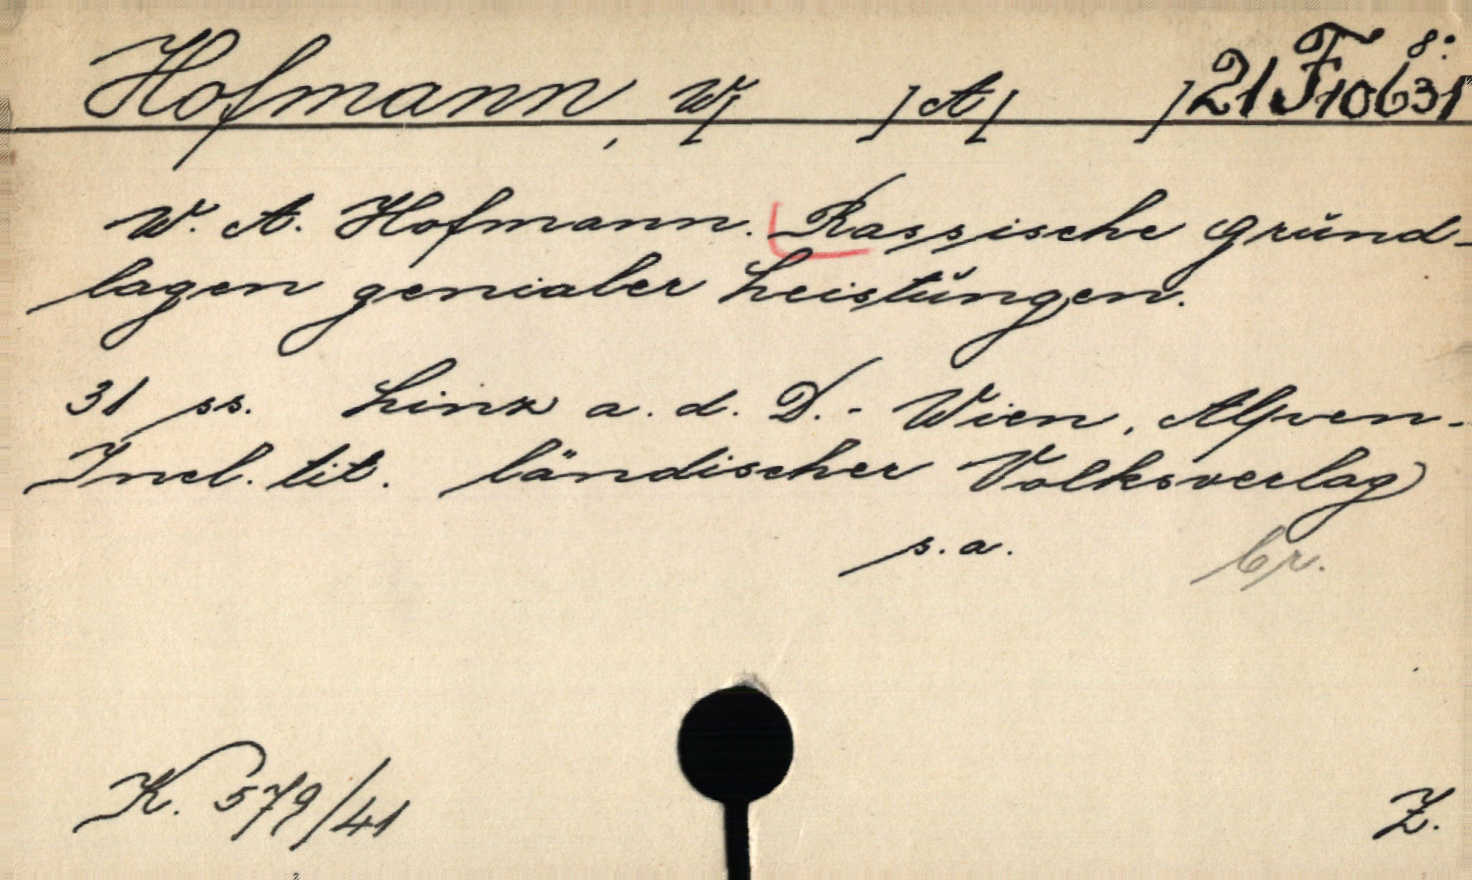 Hofmann, W[ ] A[ ] 21 F 10631 8°
W. A. Hofmann. Rassische Grund-
lagen genialer Leistungen.
31 ss. Linz a. d. D. - Wien, Alpen-
Incl. tit. ländischer Volksverlag
s. a. br.
K. 579/41 Z.